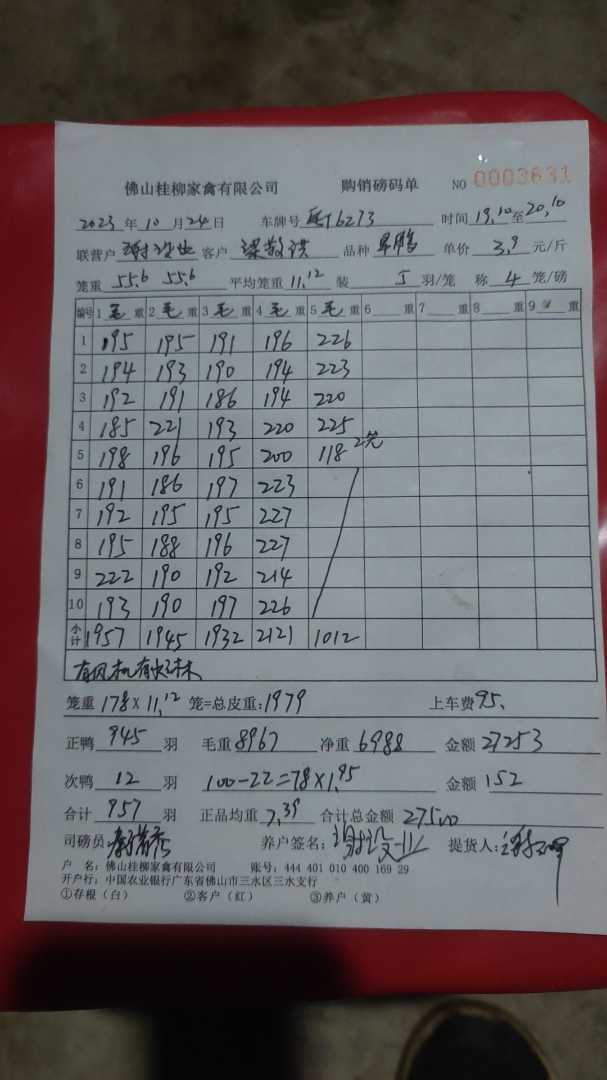 佛山桂柳家禽有限公司 购销磅码单 NO 0003631
2023 年 10 月 24 日 车牌号 6273 时间 19,10 至 20,10
联营户 客户 品种 单价 3.9 元/斤
笼重 55.6 55.6 平均笼重 11.12 装 5 羽/笼 称 4 笼/磅
编号 1 毛 重 2 毛 重 3 毛 重 4 毛 重 5 毛 重 6 重 7 重 8 重 9 重
1 195 195 191 196 226
2 194 193 190 194 223
3 192 191 186 194 220
4 185 221 193 220 225
5 198 196 195 200 118 2笼
6 191 186 197 223
7 192 195 195 227
8 195 188 196 227
9 222 190 192 214
10 193 190 197 226
小计 1957 1945 1932 2121 1012
有风机有
笼重 178 X 11.12 笼=总皮重:1979 上车费 95.
正鸭 945 羽 毛重 8967 净重 6988 金额 27253
次鸭 12 羽 100-22=78X1.95 金额 152
合计 957 羽 正品均重 7.39 合计总金额 27500
司磅员 养户签名: 提货人:
户 名: 佛山桂柳家禽有限公司 账号: 444 401 010 400 169 29
开户行: 中国农业银行广东省佛山市三水区三水支行
①存根(白) ②客户(红) ③养户(黄)